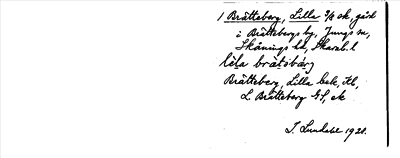 1 Brätteberg, Lilla 3/8 ok, gård
i Brättebergs by, Jungs sn,
Skånings hd, Skarab. l
lɛ́la brätobärj
Brätteberg, Lilla Gek, Hl,
L. Brätteberg GS, ek
I. Lundahl 1920.